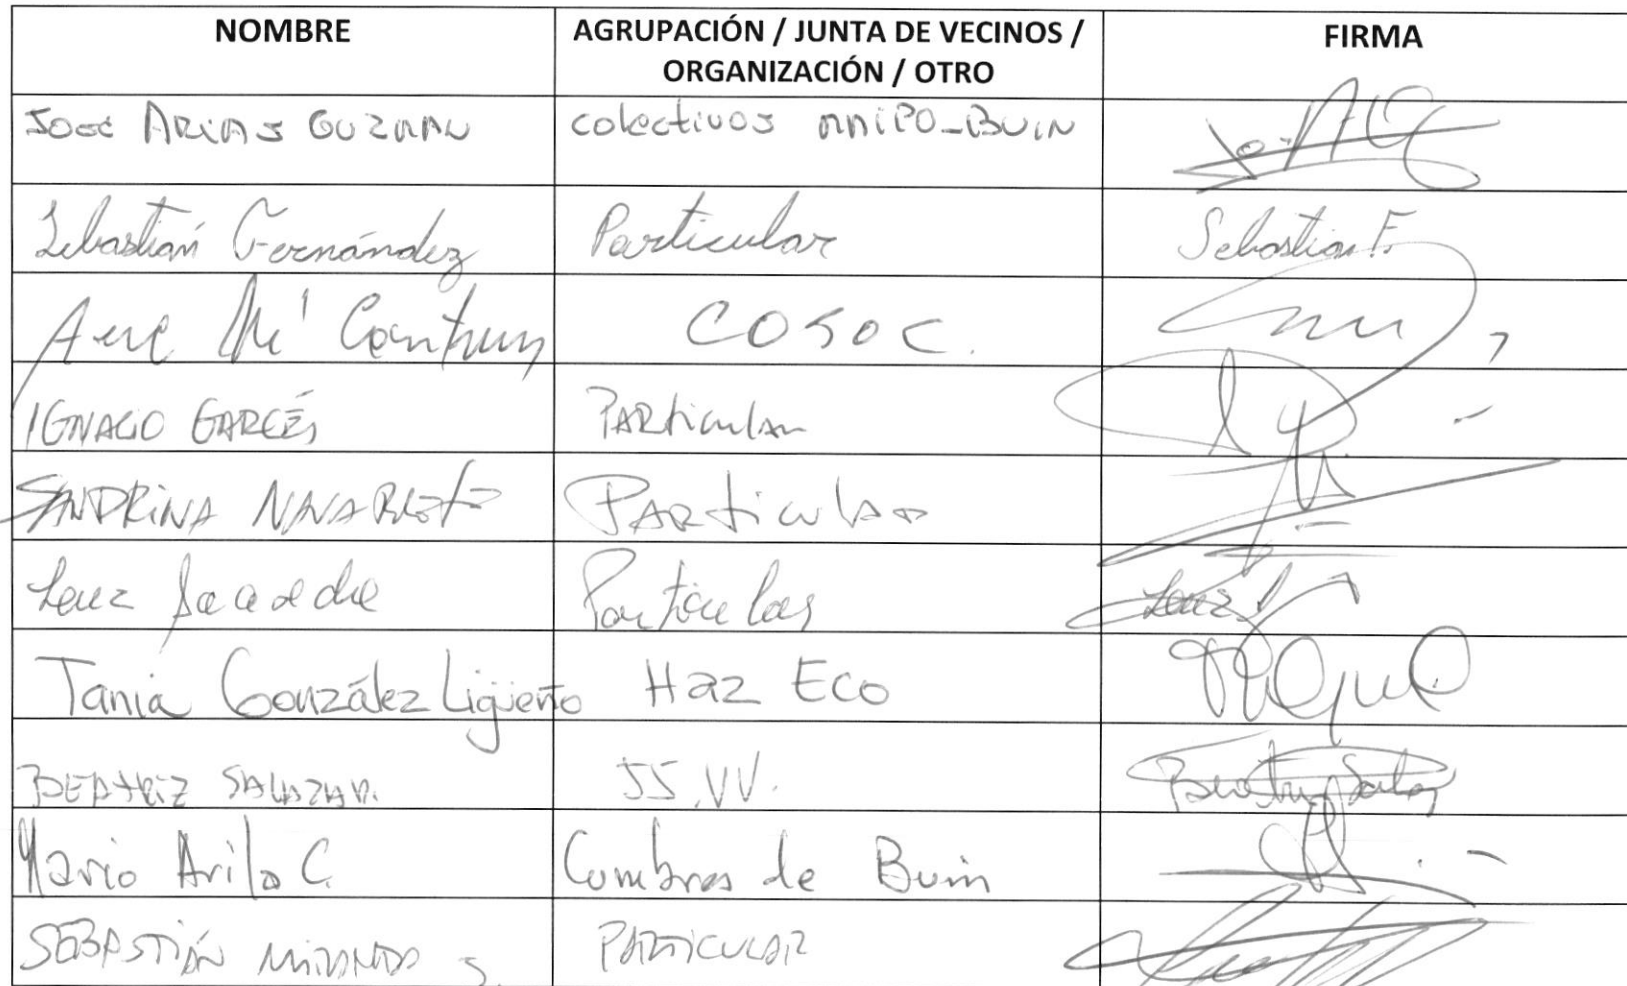 NOMBRE
AGRUPACIÓN / JUNTA DE VECINOS /
ORGANIZACIÓN / OTRO
FIRMA
José ARIAS GUZMAN colectivos MAIPO-BUIN
Sebastián Fernández Particular Sebastian F.
COSOC.
IGNACIO GARCÉS PARticular
SANDRINA NAVARRETE PARticular
Luz Particular Luz
Tania González Ligüeño Haz Eco
BEATRIZ SALAZAR. JJ.VV. Beatriz Salazar
Mario Avila C. Cumbres de Buin
SEBASTIÁN MIRANDA S. PARTICULAR